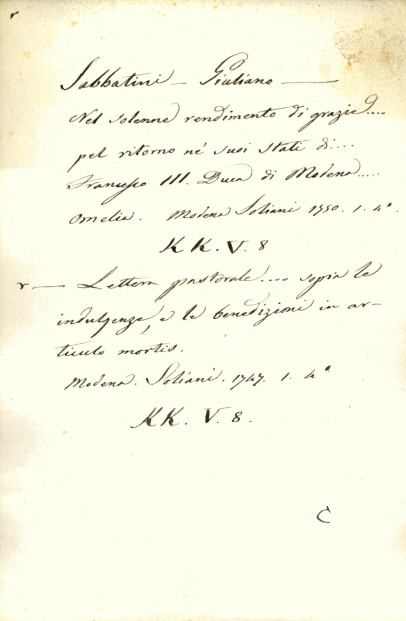 Sabbatini — Giuliano —
Nel solenne rendimento di grazie....
pel ritorno né suoi stati di....
Francesco III. Duca di Modena.....
Omelia. Modena Soliani 1750. 1. 4°
KK. V. 8
r — Lettera pastorale.... sopra le
indulgenze, e le benedizioni in ar-
ticulo mortis.
Modena. Soliani. 1747. 1. 4°
KK. V. 8.
C